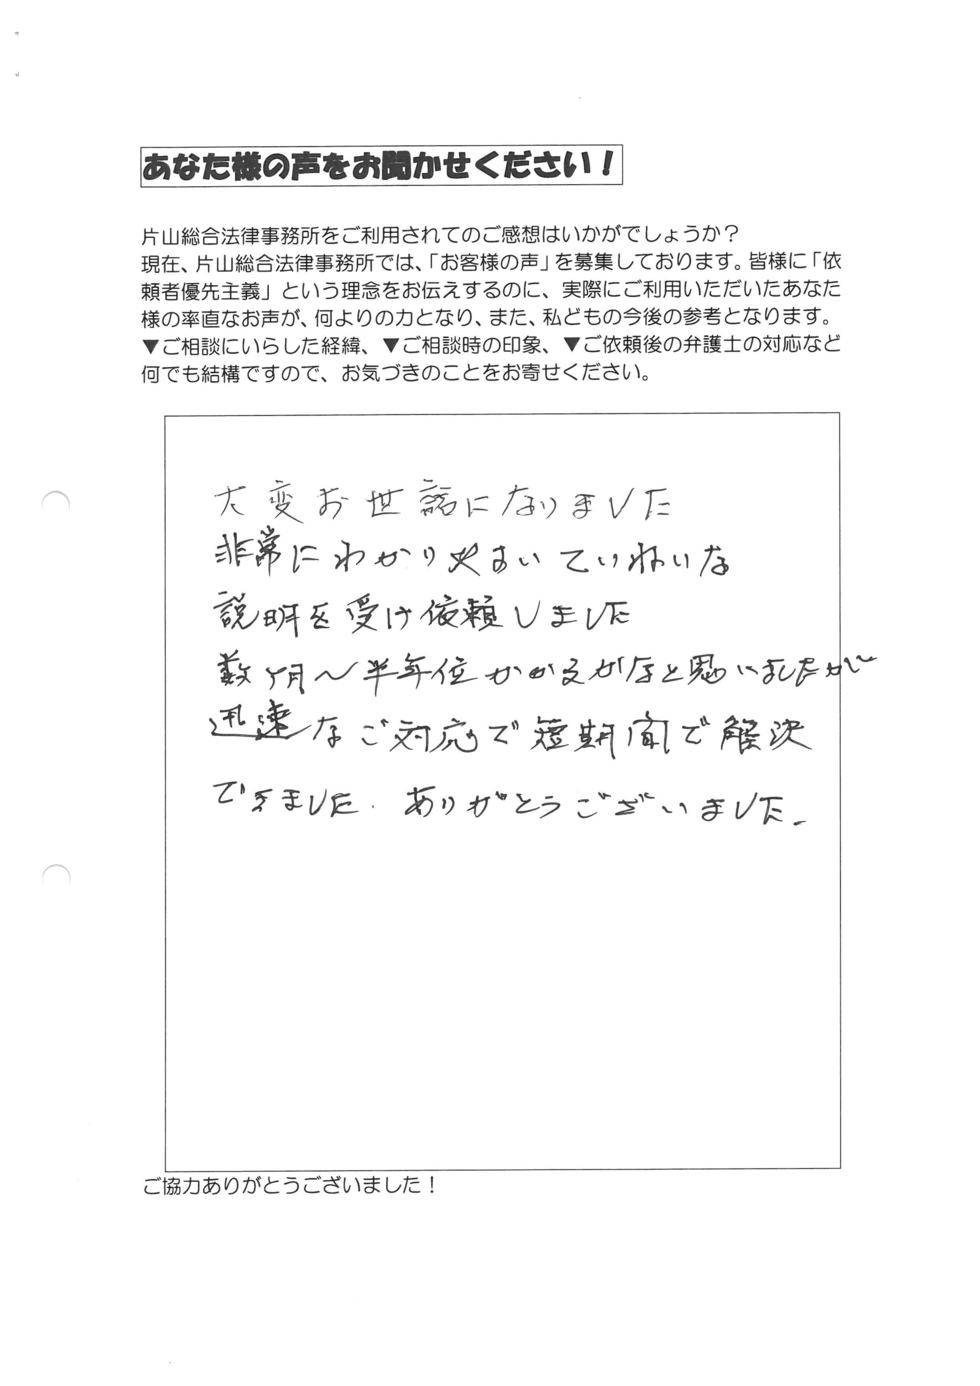 あなた様の声をお聞かせください！
片山総合法律事務所をご利用されてのご感想はいかがでしょうか？
現在、片山総合法律事務所では、「お客様の声」を募集しております。皆様に「依
頼者優先主義」という理念をお伝えするのに、実際にご利用いただいたあなた
様の率直なお声が、何よりの力となり、また、私どもの今後の参考となります。
▼ご相談にいらした経緯、▼ご相談時の印象、▼ご依頼後の弁護士の対応など
何でも結構ですので、お気づきのことをお寄せください。
大変お世話になりました
非常にわかりやすいていねいな
説明を受け依頼しました
数ヶ月～半年位かかるかなと思いましたが
迅速なご対応で短期間で解決
できました. ありがとうございました.
ご協力ありがとうございました！